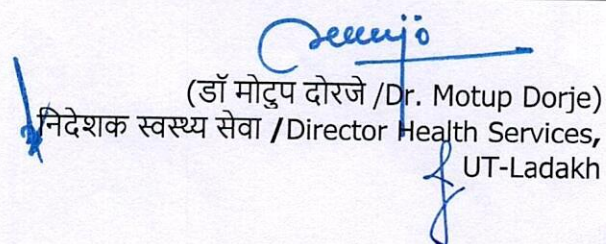 (डॉ मोटुप दोरजे /Dr. Motup Dorje)
निदेशक स्वस्थ्य सेवा /Director Health Services,
UT-Ladakh